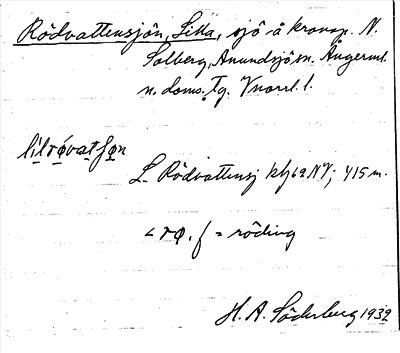 Rödvattensjön, Lilla, sjö å kronop. N.
Solberg, Anundsjö sn. Ångerml.
n. doms. Tg. Vnorrl. l.
lìlrǿvatʃøn
L. Rödvattensj kbl 62 NV; 415 m.
< rø. f = röding
H. A. Söderberg 1932